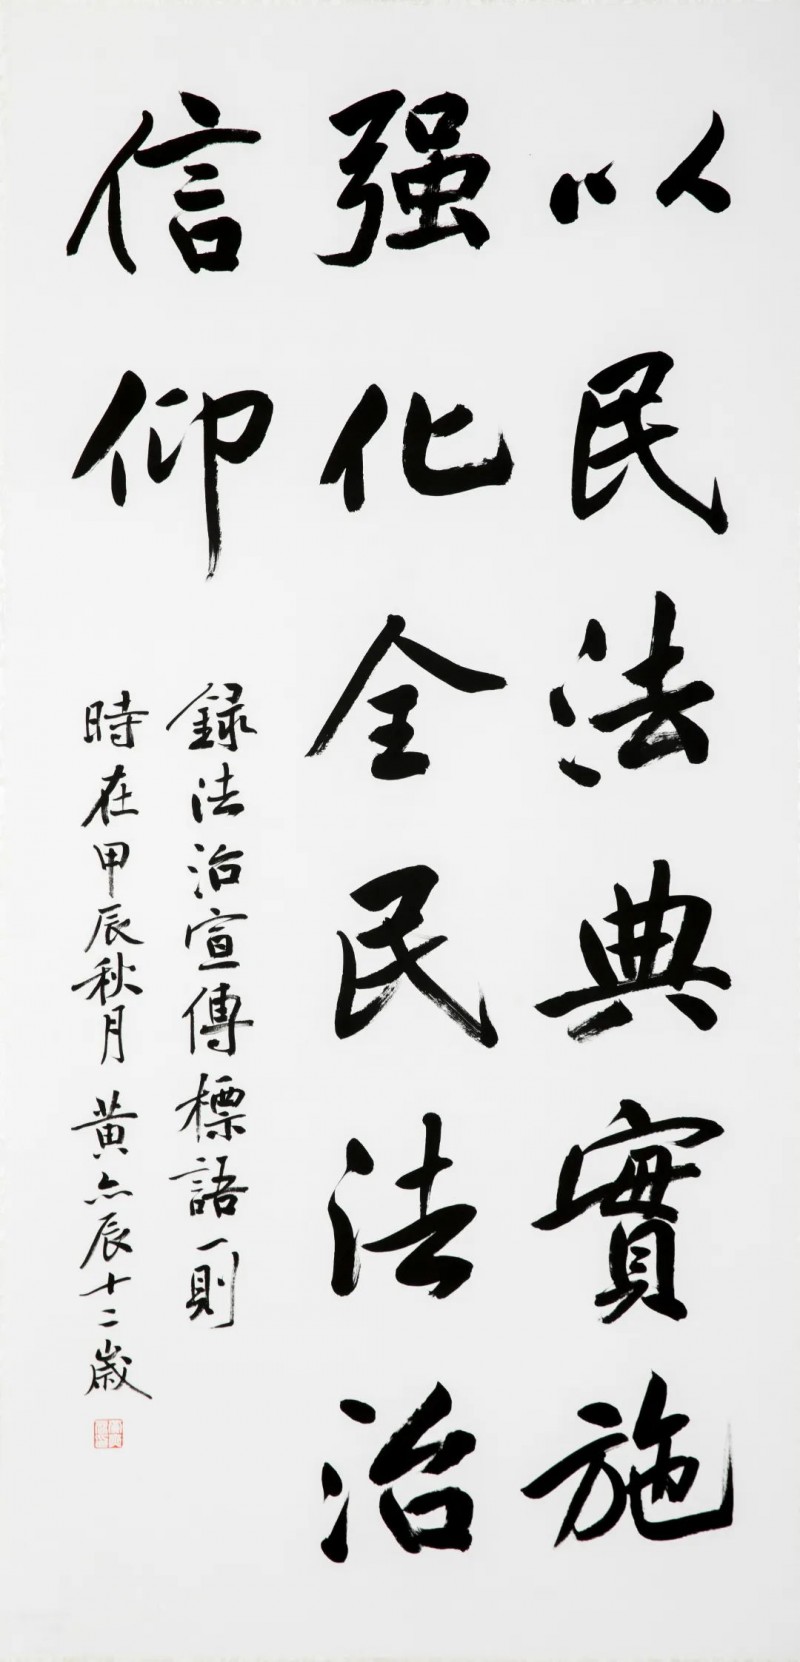 以民法典實施
强化全民法治
信仰
録法治宣傳標語一則
時在甲辰秋月黄亦辰十二歲